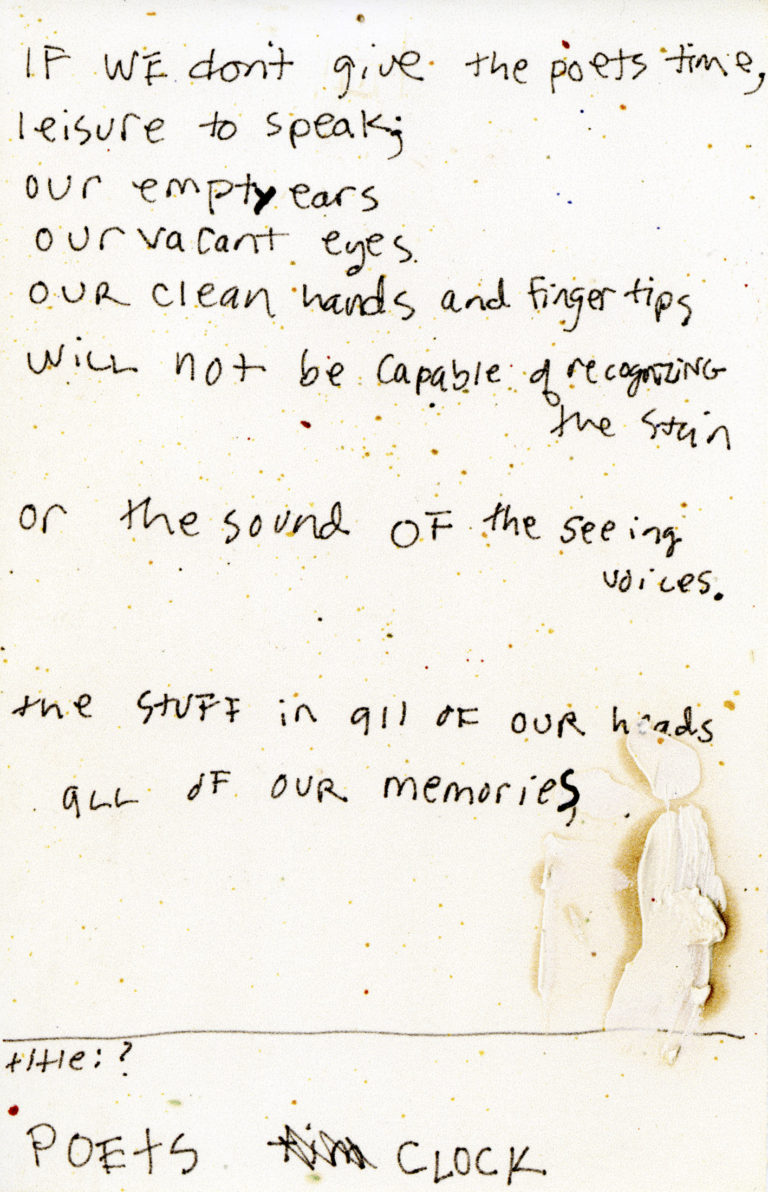 IF WE don't give the poets time,
leisure to speak;
our empty ears
our vacant eyes.
OUR clean hands and finger tips
WILL not be capable of recognizing
the stain
or the sound OF the seeing
voices.
the STUFF in all OF OUR heads
aLL OF OUR memories,
title: ?
POETS CLOCK